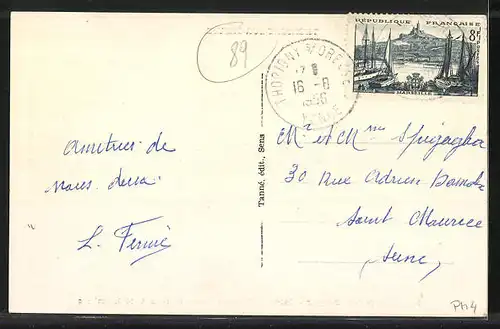 89
THORIGNY S/OREUSE
16 -8
1956
YONNE
REPUBLIQUE FRANÇAISE
8F
MARSEILLE
Amitiés de
nous deux
L. Ferrié
Tanné, édit., Sens
Mr et Mme
30 Rue Adrien Damoter
Saint Maurice
Seine
Ph4